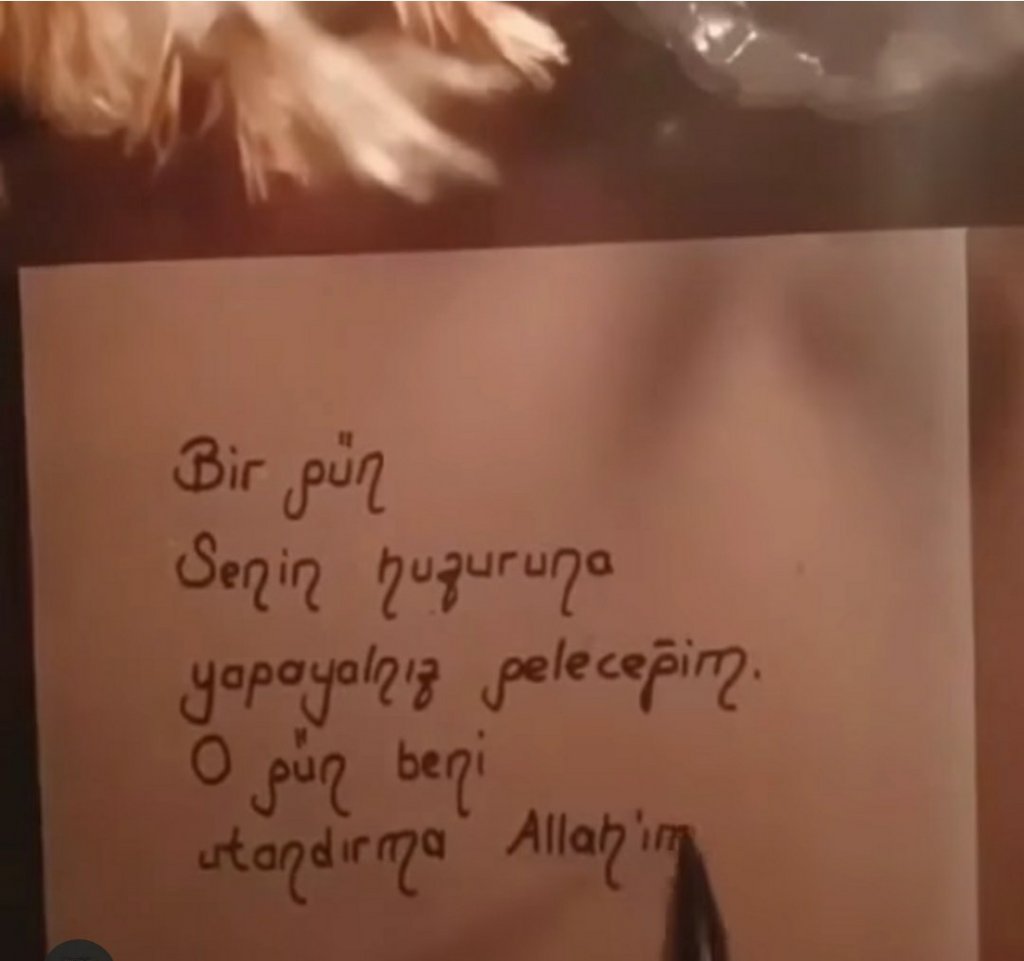 Bir gün
Senin huzuruna
yapayalnız geleceğim.
O gün beni
utandırma Allah'ım